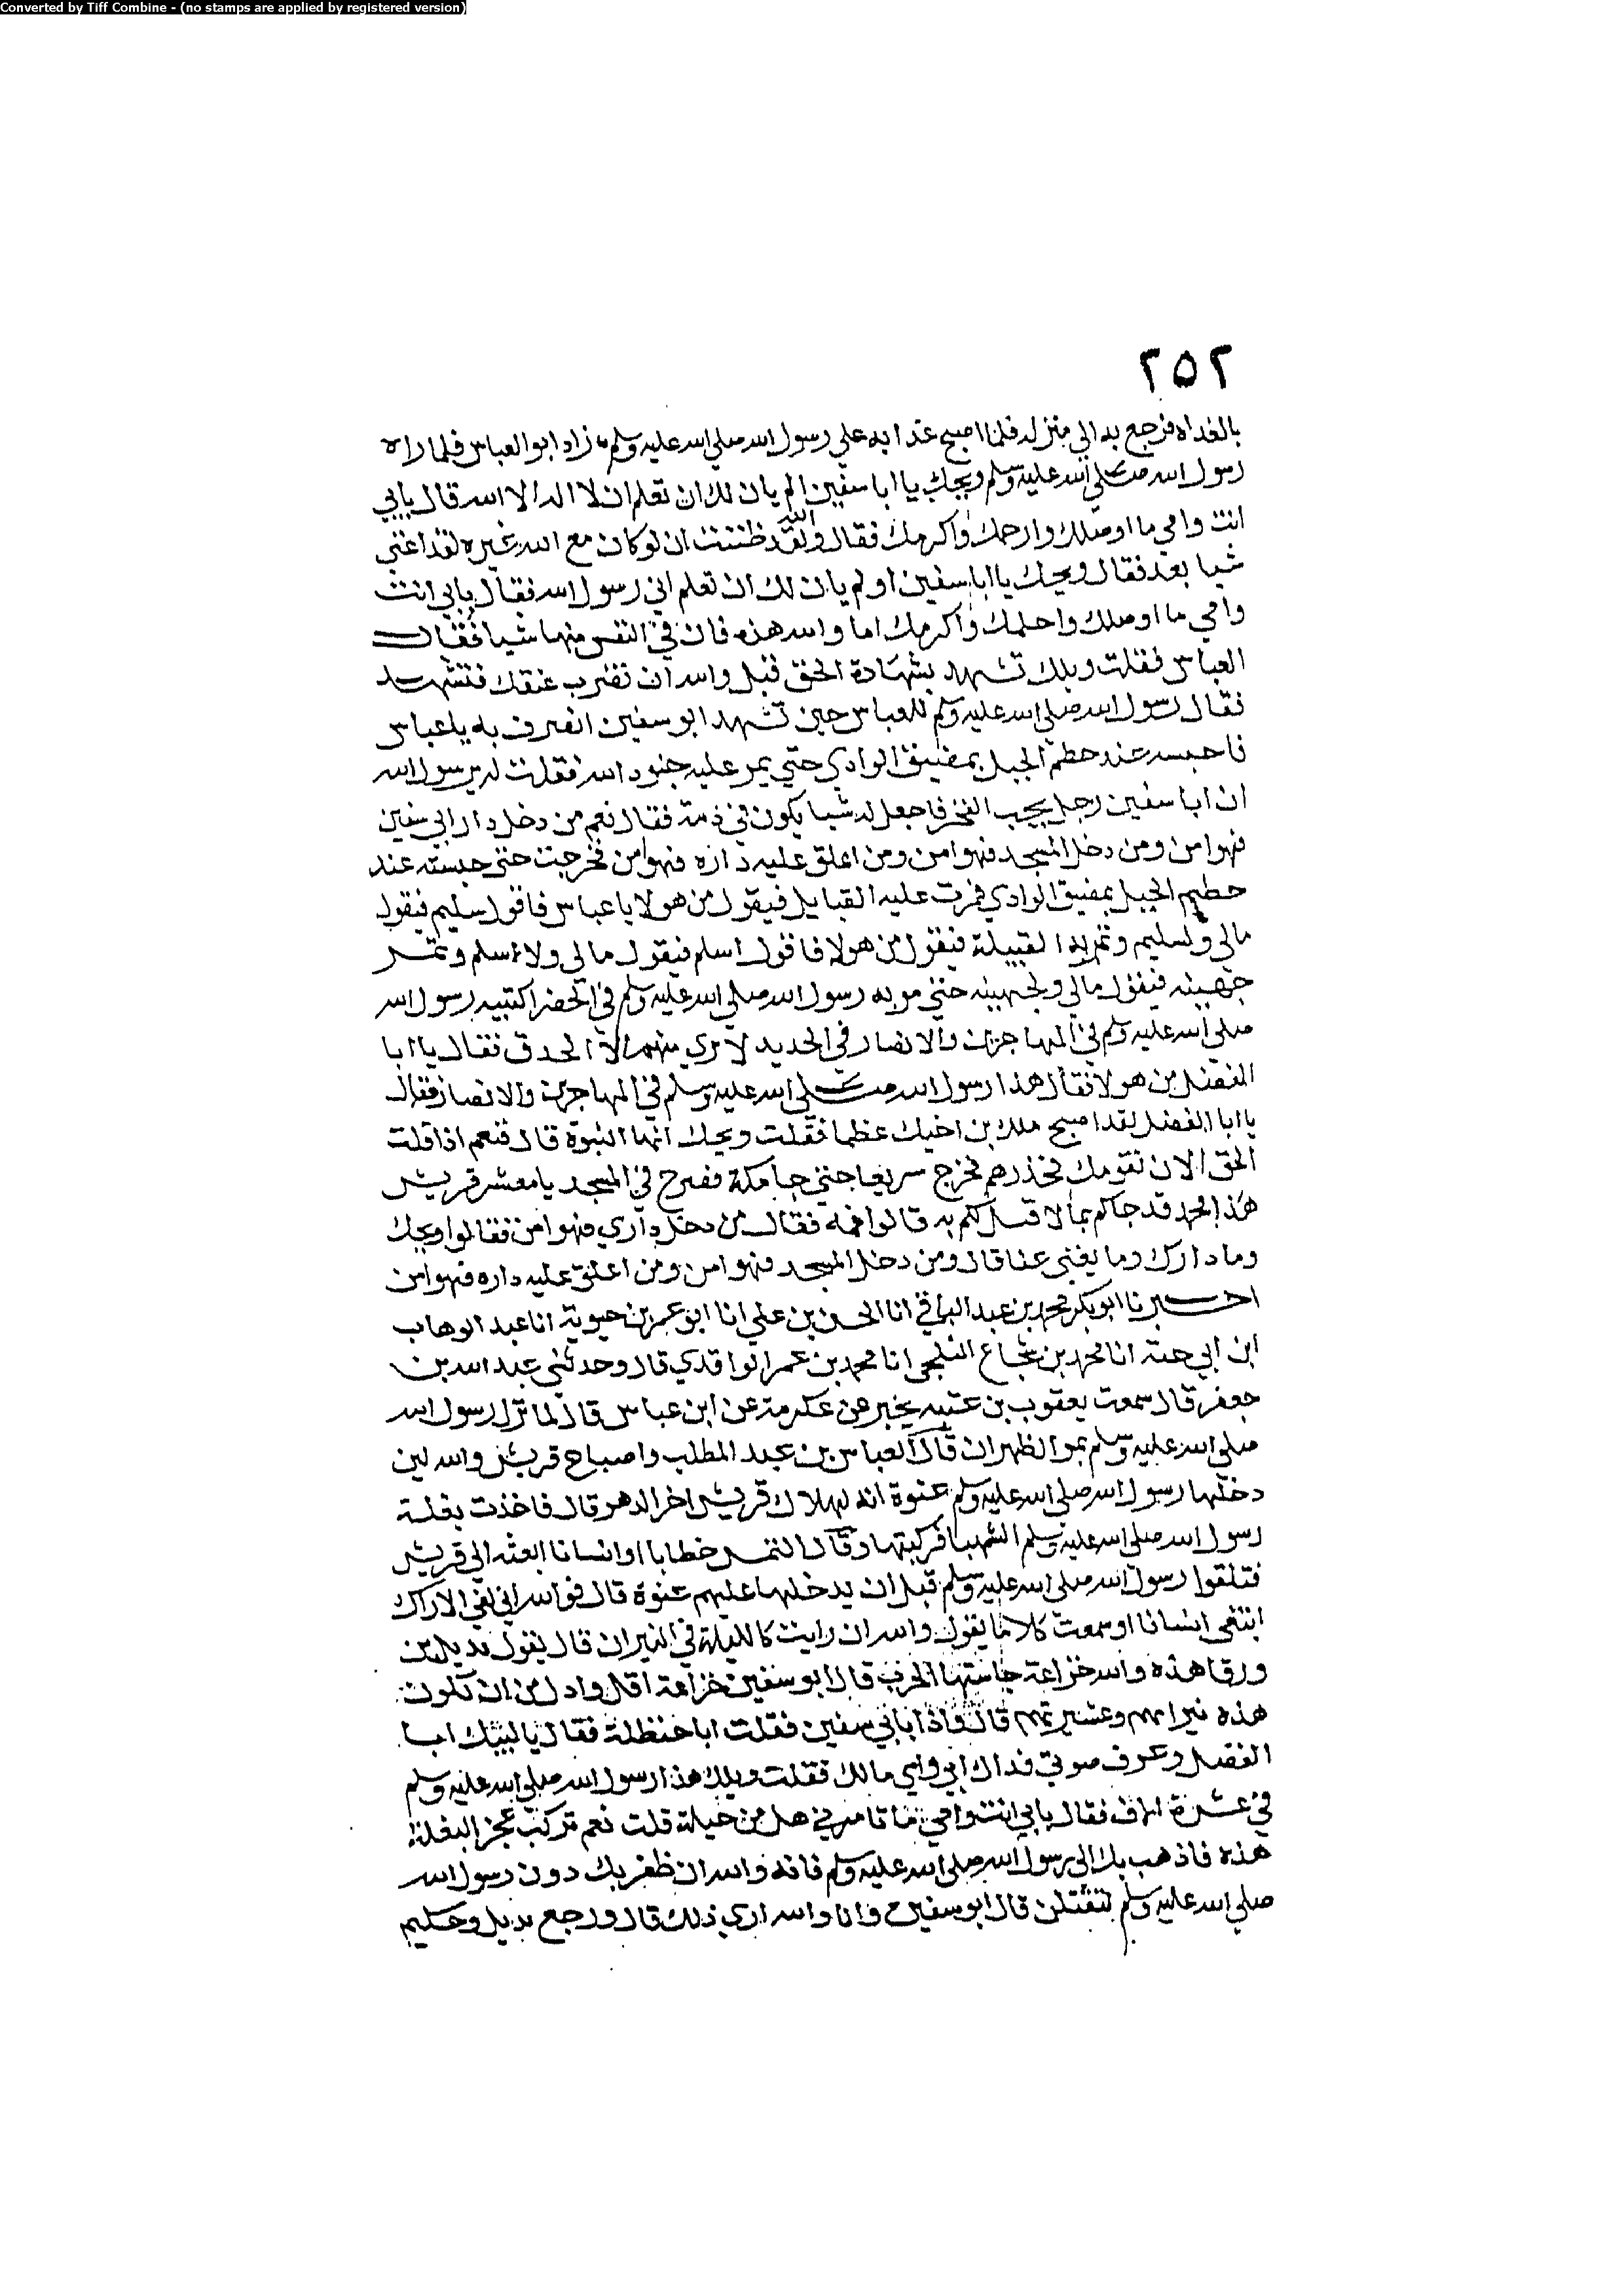 Converted by Tiff Combine - (no stamps are applied by registered version)
٢٥٢
بالغداه فرجع به الي منزله فلما اصبح غدا به علي رسول الله صلي الله عليه وسلم زاد ابو العباس فلما راه
رسول الله صلي الله عليه وسلم ويحك يا ابا سفين الم يان لك ان تعلم ان لا اله الا الله قال بابي
انت وامي ما اوصلك وارحمك واكرمك فقال والله لقد ظننت ان لو كان مع الله غيره لقد اغني
شيا بعد فقال ويحك يا ابا سفين اولم يان لك ان تعلم اني رسول الله فقال بابي انت
وامي ما اوصلك واحلمك واكرمك اما والله هذه فان في النفس منها شيا فقال
العباس فقلت ويلك تشهد بشهادة الحق قبل والله ان تضرب عنقك فتشهد
فقال رسول الله صلي الله عليه وسلم للعباس حين تشهد ابو سفين انصرف به يا عباس
فاحبسه عند حطم الجبل بمضيق الوادي حتي يمر عليه جنود الله فقلت له يرسول الله
ان ابا سفين رجل يحب الفخر فاجعل له شيا يكون في قومه فقال نعم من دخل دار ابي سفين
فهو امن ومن دخل المسجد فهو امن ومن اغلق عليه داره فهو امن فخرجت حتي حبسته عند
حطيم الجبل بمضيق الوادي فمرت عليه القبايل فيقول من هولا يا عباس فاقول سليم فيقول
مالي ولسليم وتمر به القبيلة فيقول من هولا فاقول اسلم فيقول مالي ولاسلم وتمر
جهينه فيقول مالي ولجهينه حتي مر به رسول الله صلي الله عليه وسلم في الخضرا كتيبه رسول الله
صلي الله عليه وسلم في المهاجرين والانصار في الحديد لا يري منهم الا الحدق فقال يا ابا
الفضل من هولا فقال هذا رسول الله صلي الله عليه وسلم في المهاجرين والانصار فقال
يا ابا الفضل لقد اصبح ملك بن اخيك عظيما فقلت ويحك انها النبوة قال فنعم اذا قلت
الحق الان بقومك فحذرهم فخرج سريعا حتي جا مكة فصرخ في المسجد يا معشر قريش
هذا محمد قد جاكم بما لا قبل لكم به قالوا فمه فقال من دخل داري فهو امن فقالوا ويحك
وما دارك وما يغني عنا قال ومن دخل المسجد فهو امن ومن اغلق عليه داره فهو امن
اخبرنا ابو بكر محمد بن عبد الباقي انا الحسن بن علي انا ابو عمر بن حيوية انا عبد الوهاب
ابن ابي حية انا محمد بن شجاع الثلجي انا محمد بن عمر الواقدي قال وحدثني عبد الله بن
جعفر قال سمعت يعقوب بن عتبه يخبر عن عكرمة عن ابن عباس قال لما نزل رسول الله
صلي الله عليه وسلم بمر الظهران قال العباس بن عبد المطلب واصباح قريش والله لين
دخلها رسول الله صلي الله عليه وسلم عنوة انه لهلاك قريش اخر الدهر قال فاخذت بغلة
رسول الله صلي الله عليه وسلم الشهبا فركبتها وقال التمس خطابا او انسانا ابعثه الي قريش
فتلقوا رسول الله صلي الله عليه وسلم قبل ان يدخلها عليهم عنوة قال فوالله اني لفي الاراك
ابتغي انسانا او سمعت كلاما يقول والله ان رايت كالليلة في النيران قال يقول بديل بن
ورقا هذه والله خزاعة حاشتها الحرب قال ابو سفين خزاعة اقل وادل من ان تكون
هذه نيرانهم وعشيرتهم قال فاذا بابي سفين فقلت ابا حنظلة فقال يا لبيك ابا
الفضل وعرف صوتي فداك ابي وامي مالك فقلت ويلك هذا رسول الله صلي الله عليه وسلم
في عشرة الاف فقال بابي انت وامي ما تامرني هل من حيلة قلت نعم تركب عجز البغلة
هذه فاذهب بك الي رسول الله صلي الله عليه وسلم فانه والله ان ظفر بك دون رسول الله
صلي الله عليه وسلم لتقتلن قال ابو سفين وانا والله اري ذلك قال ورجع بديل وحكيم